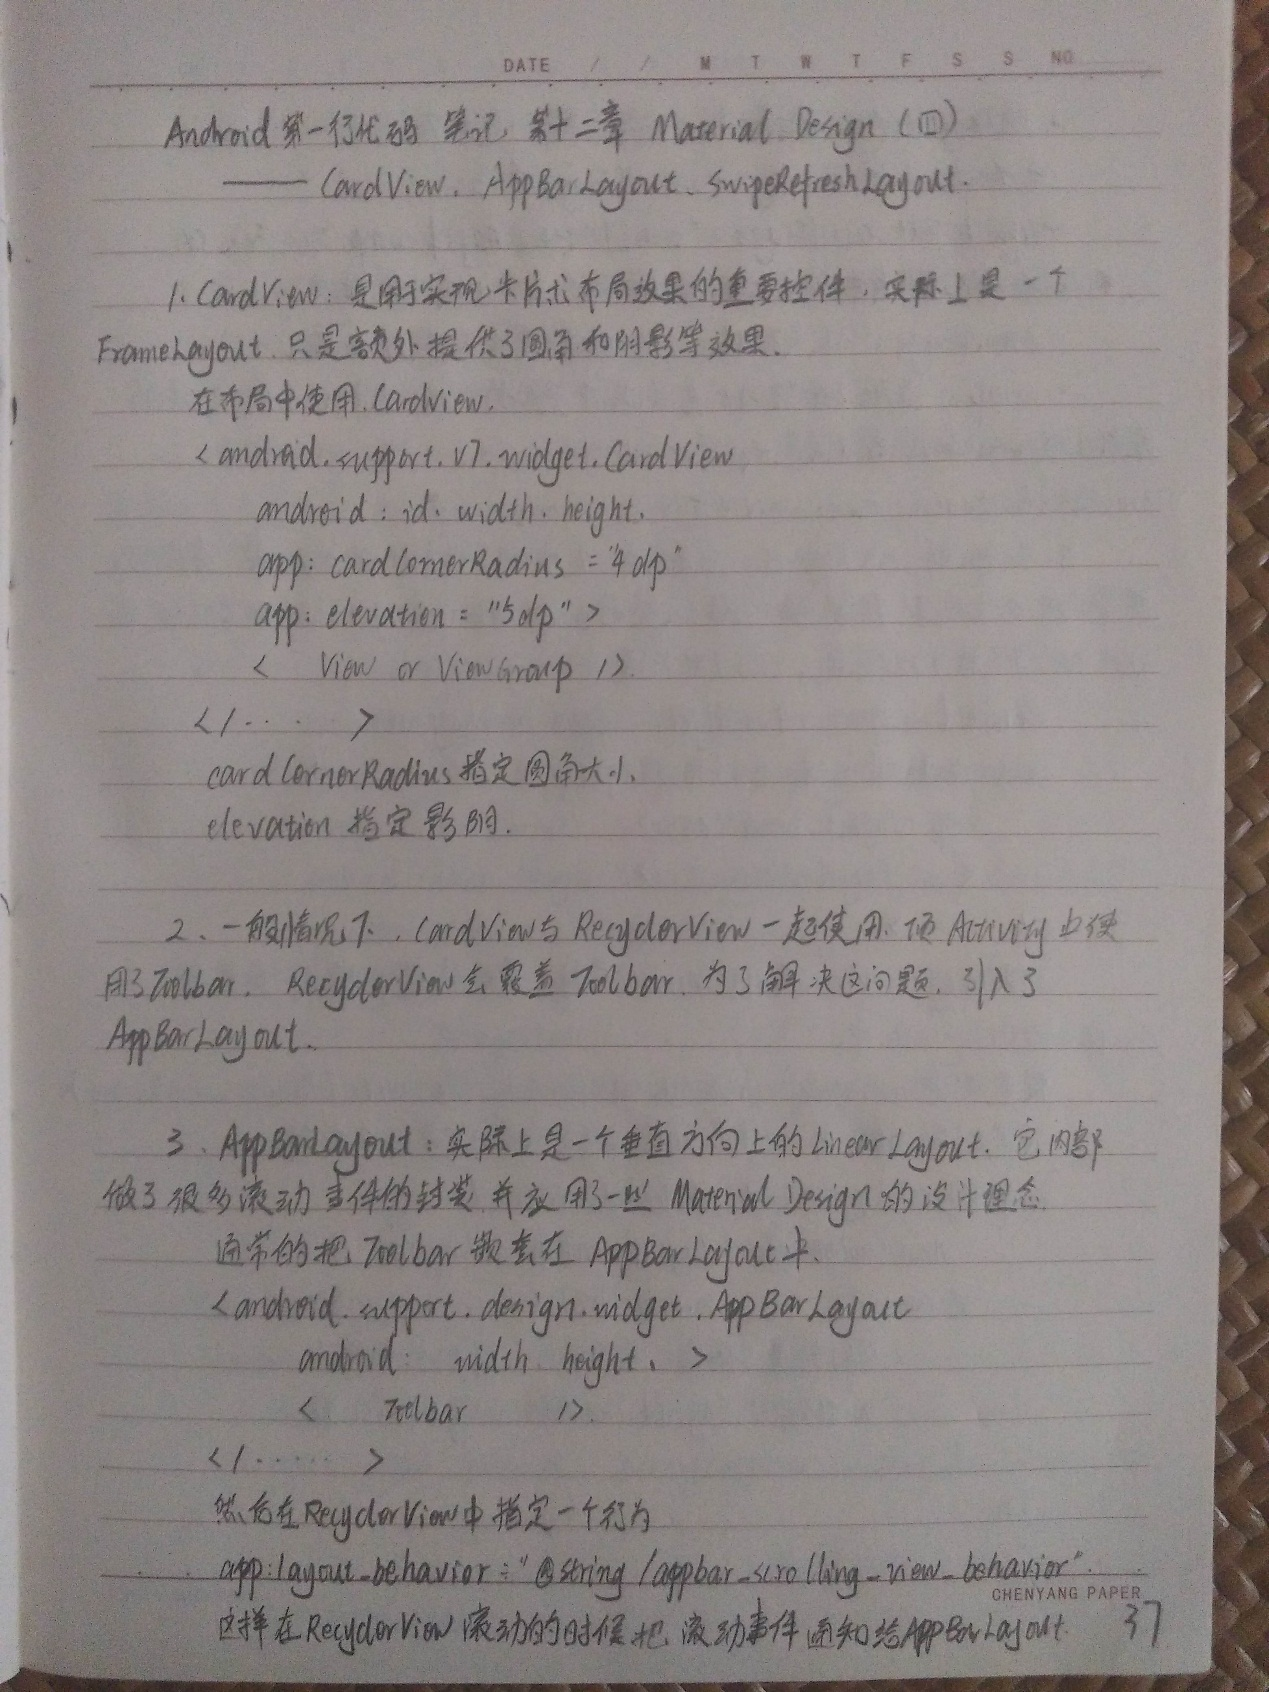 DATE / / M T W T F S S NO
Android 第一行代码 笔记 第十二章 Material Design (四)
—— CardView、AppBarLayout、SwipeRefreshLayout.
1. CardView：是用于实现卡片式布局效果的重要控件，实际上是一个
FrameLayout 只是额外提供了圆角和阴影等效果.
在布局中使用 CardView.
<android.support.v7.widget.CardView
android：id. width. height.
app：cardCornerRadius = "4dp"
app：elevation = "5dp" >
< View or ViewGroup />
</... >
cardCornerRadius 指定圆角大小.
elevation 指定影阴.
2、一般情况下，CardView与 RecyclerView 一起使用. Activity 也使
用了Toolbar. RecyclerView会覆盖Toolbar. 为了解决这问题. 引入了
AppBarLayout.
3、AppBarLayout：实际上是一个垂直方向上的LinearLayout. 它内部
做了很多滚动事件的封装 并应用了一些 Material Design 的设计理念
通常的把 Toolbar 嵌套在 AppBarLayout中.
<android.support.design.widget.AppBarLayout
android： width height. >
< Toolbar />
</...... >
然后在RecyclerView中指定一个行为
app:layout_behavior="@string/appbar_scrolling_view_behavior".
CHENYANG PAPER
这样在RecyclerView 滚动的时候把 滚动事件 通知给AppBarLayout. 37